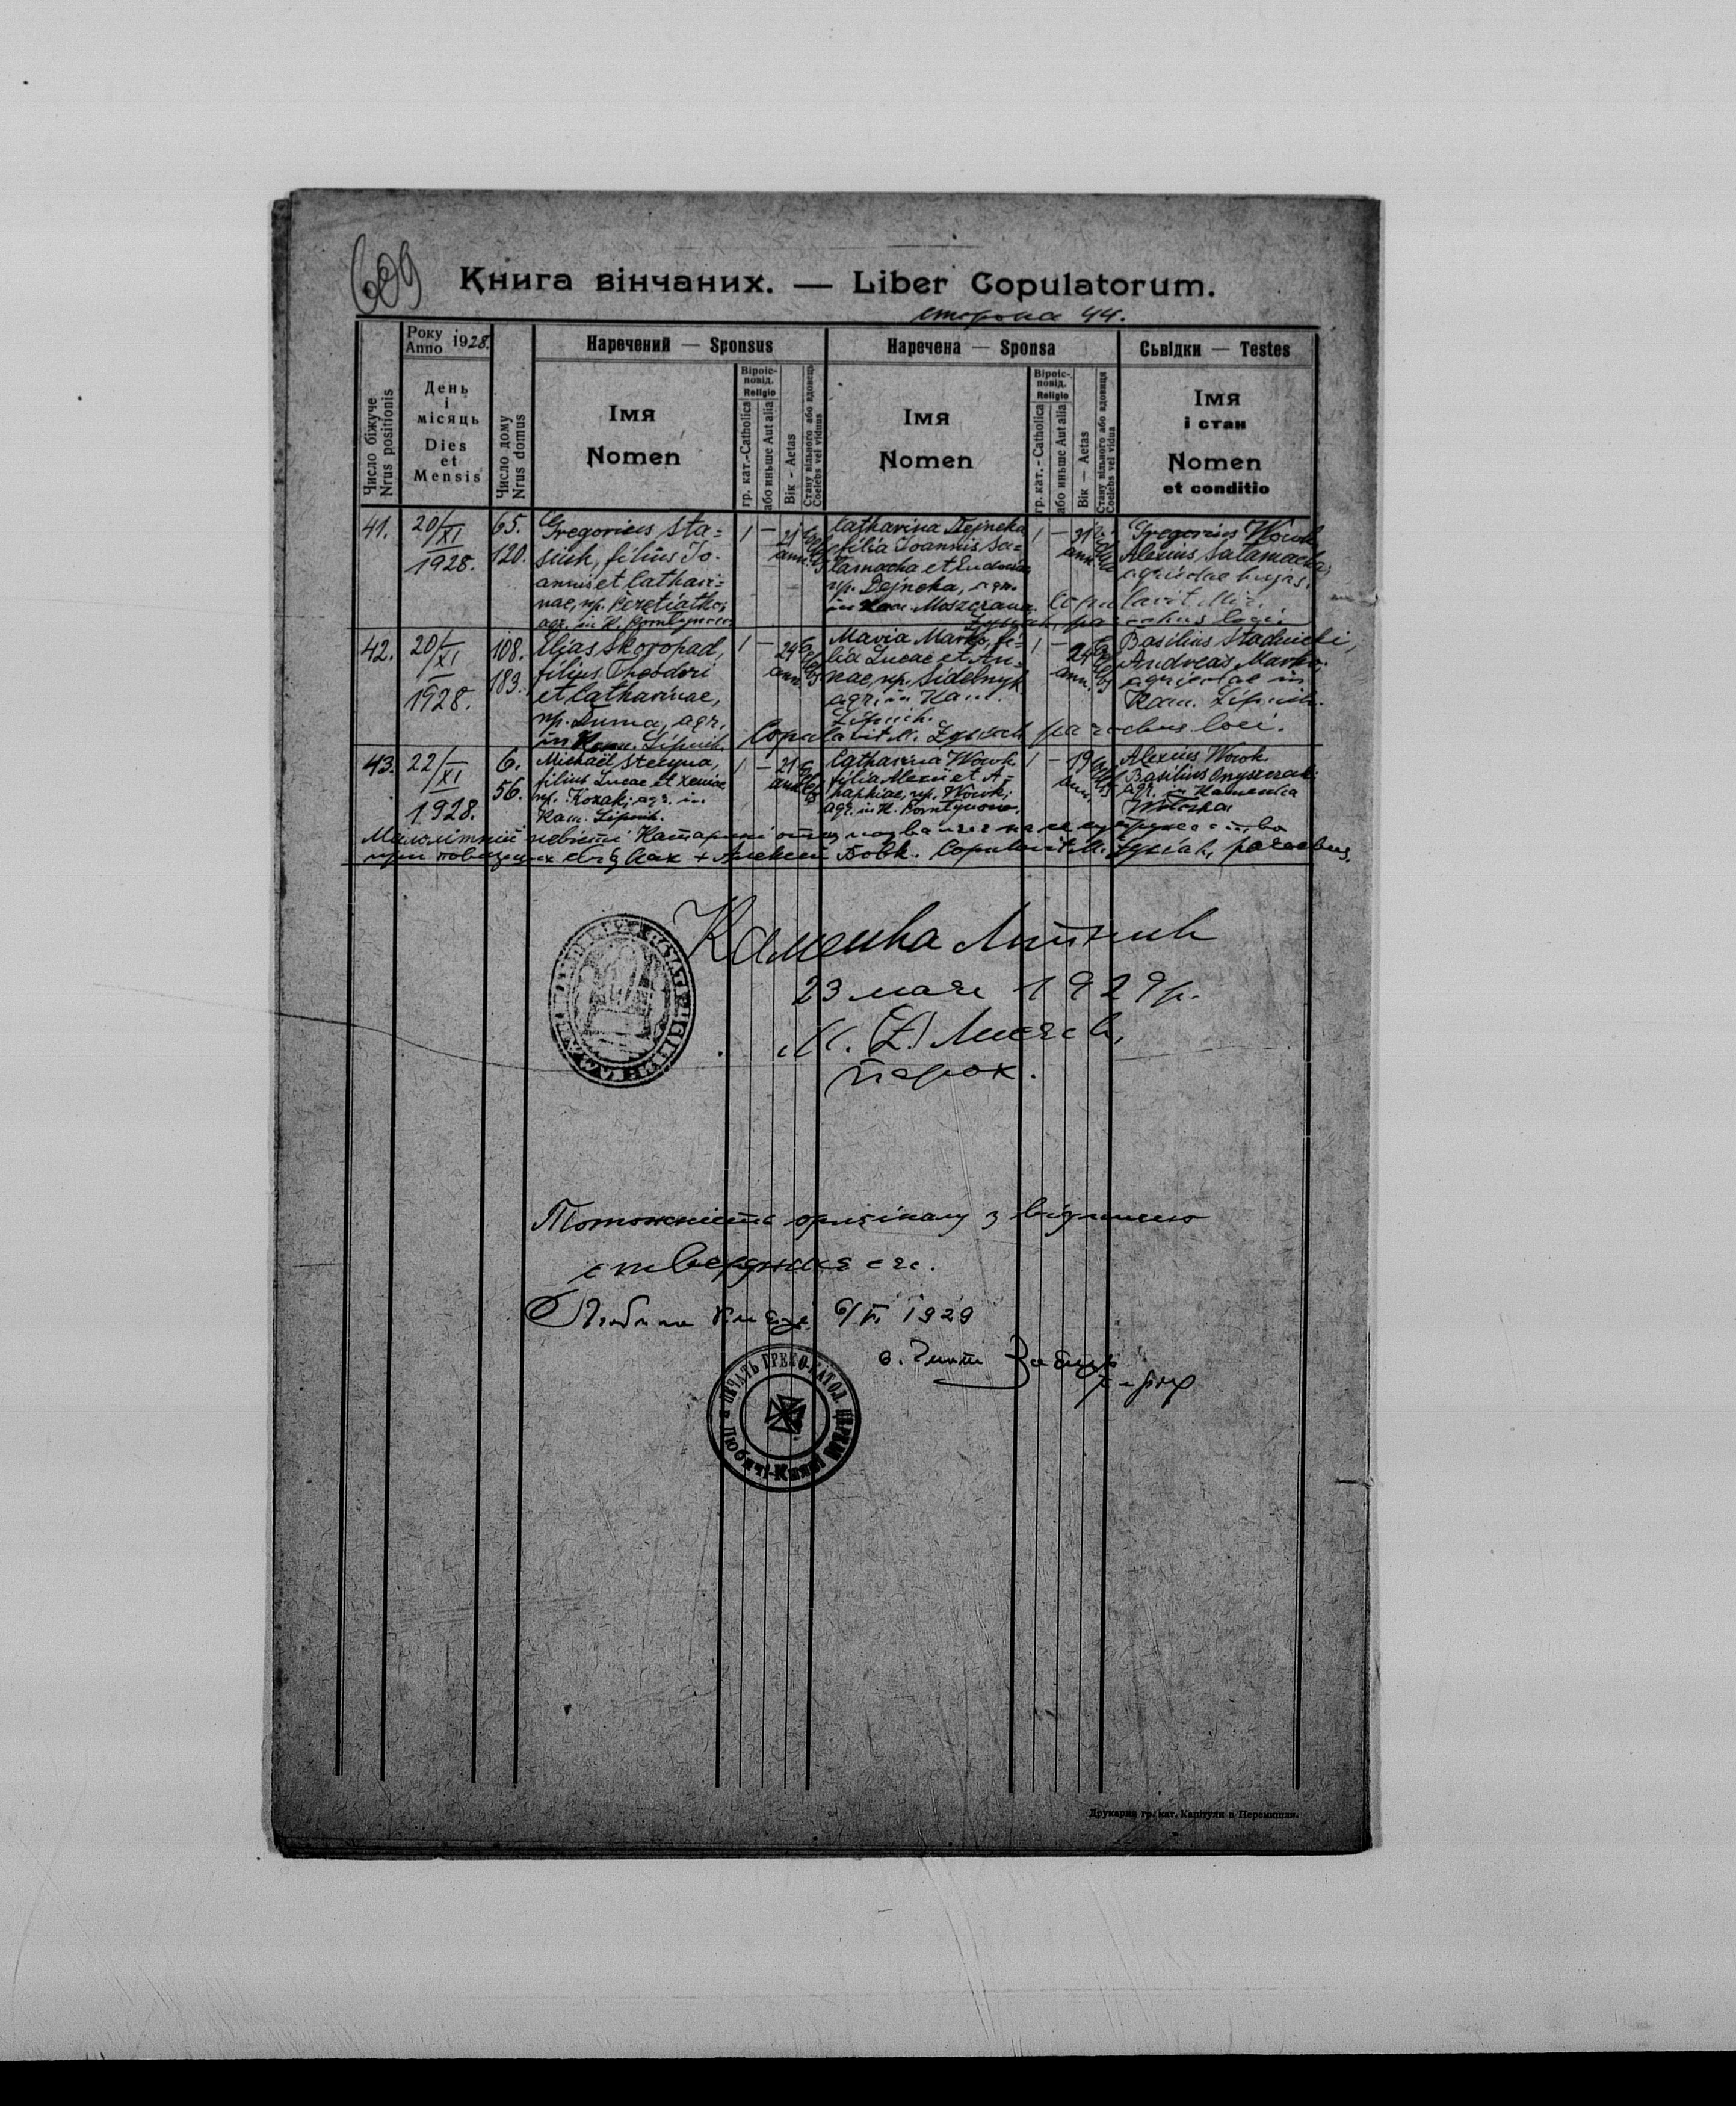 609
Книга вінчаних. — Liber Copulatorum.
сторона 44.
Число біжуче
Nrus positionis
Року
Anno 1928.
День
і
місяць
Dies
et
Mensis
Число дому
Nrus domus
Наречений — Sponsus
Імя
Nomen
Віроіс-
повід.
Religio
гр. кат.-Catholica
або иньше Aut alia
Вік - Aetas
Стану вільного або вдовець
Coelebs vel viduus
Наречена — Sponsa
Імя
Nomen
Віроіс-
повід.
Religio
гр. кат. - Catholica
або иньше Aut alia
Вік — Aetas
Стану вільного або вдовиця
Coelebs vel vidua
Сьвідки — Testes
Імя
і стан
Nomen
et conditio
41.
20/XI
1928.
65.
120.
Gregorius Sta-
siuk, filius Jo-
annis et Cathari-
nae, np. Peretiatko,
agr. in K.
1
—
21
ann.
Catharina Dejneka
filia Joannis Sa-
lamacha et Eudoxiae
np. Dejneka, agr.
in Kam. Moszczana.
1
—
21
ann.
Gregorius Wowk
Alexius Salamacha,
agricolae hujas.
Copulavit Mich.
Zysiak, parochus loci
42.
20/XI
1928.
108.
183.
Elias Skoropad,
filius Theodori
et Catharinae,
np. Duma, agr.
in Kam. Lipnik.
1
—
24
ann.
Maria Marko, fi-
lia Lucae et An-
nae, np. Sidelnyk
agr. in Kam.
Lipnik.
1
—
24
ann.
Basilius Stadnicki,
Andreas Marko.
agricolae in
Kam. Lipnik.
Copulavit M. Zysiak parochus loci.
43.
22/XI
1928.
6.
56.
Michaël Stecyna,
filius Lucae et Xeniae
np. Kozak, agr. in
Kam. Lipnik.
1
—
21
ann.
Catharina Wowk
filia Alexii et A-
haphiae, np. Wowk,
agr. in K.
1
—
19
ann.
Alexius Wowk
Basilius Onyszczak
agr. in Kamenka
Wołoska
Малолітній невісті Катарині отец
при + Алексей Вовк. Copulavit M. Zysiak, parochus.
Каменка Липник
23 мая 1929 р.
парох.
Тотожність оригіналу з відписею
стверджаєся.
Любича Княжі 6/VI 1929
ПЕЧАТЬ ГРЕКО-КАТОЛ. ЦЕРКВИ
в Любичі-Княжі
Друкарня гр. кат. Капітули в Перемишли.